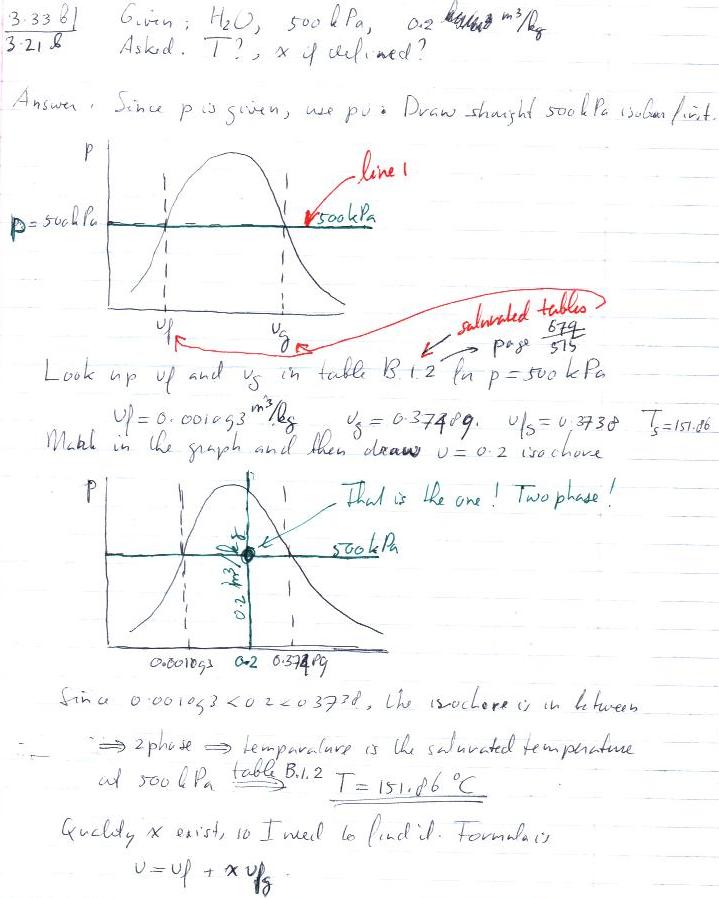 3.33 b
3.21 b
Given: H2O, 500 kPa, 0.2 m³/kg
Asked. T?, x if defined?
Answer. Since p is given, use pv. Draw straight 500 kPa isobar first.
p
line 1
p=500kPa
500kPa
vf
vg
saturated tables
page 679
515
Look up vf and vg in table B.1.2 for p=500 kPa
vf = 0.001093 m³/kg vg = 0.37489. vfg = 0.3738 Ts=151.86
Mark in the graph and then draw v = 0.2 isochore
p
That is the one! Two phase!
500kPa
0.2 m³/kg
0.001093 0.2 0.37489
Since 0.001093 < 0.2 < 0.3738, the isochore is in between
⇒ 2 phase ⇒ temparature is the saturated temperature
at 500 kPa table B.1.2 T = 151.86 °C
Quality x exist, so I need to find it. Formula is
v = vf + x vfg.